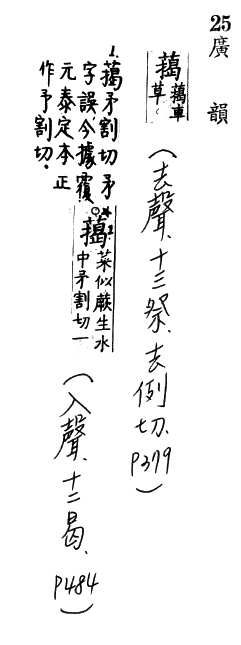 25
廣韻
藒 藒車
草
(去聲、十三祭、去例切、P379)
藒 菜似蕨生水
中矛割切一
(入聲、十二曷、P484)
1. 藒矛割切矛
字誤,今據覆
元泰定本正
作予割切.